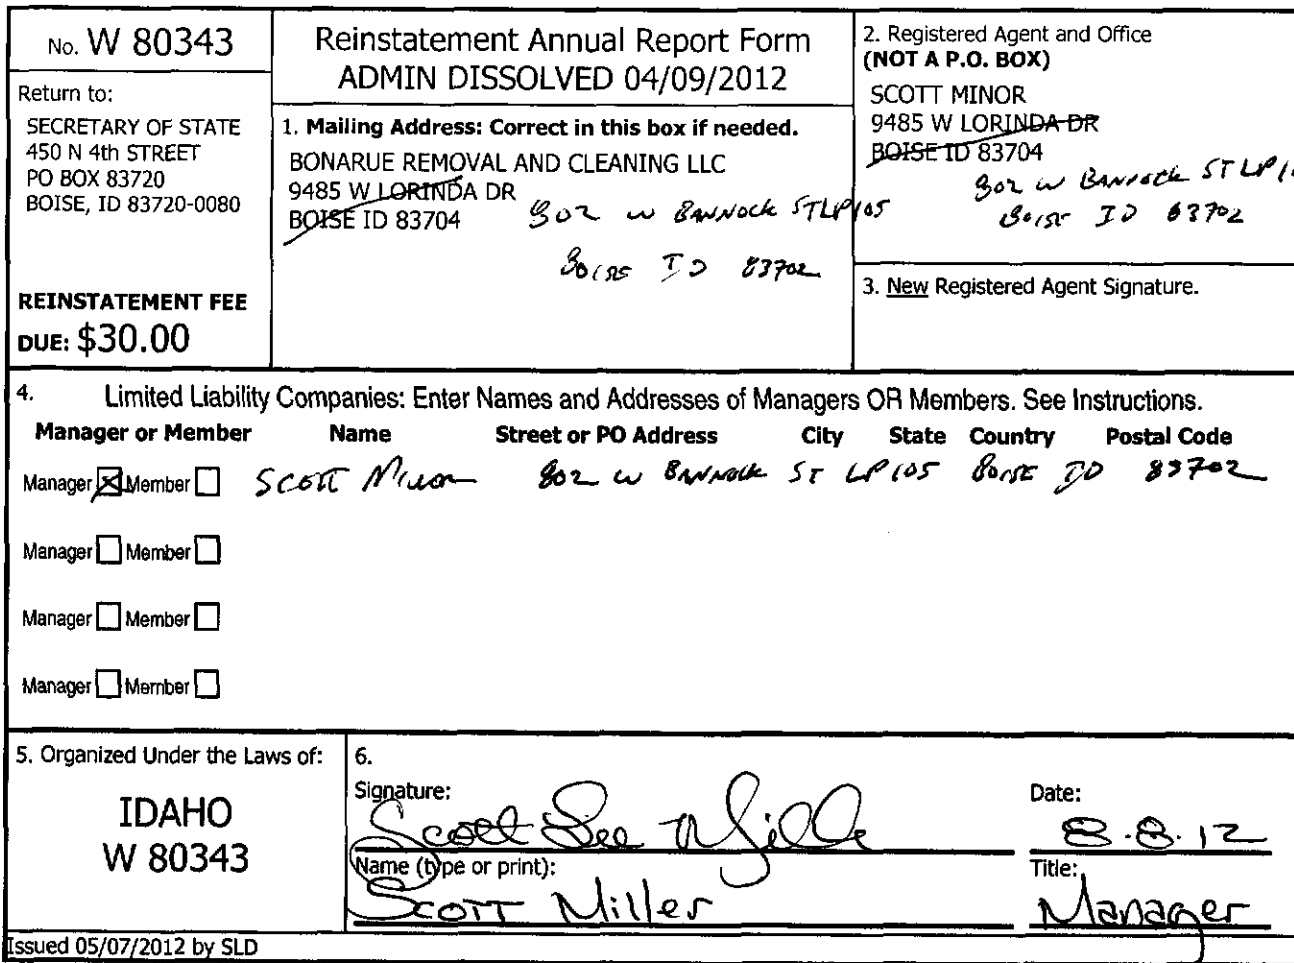 No. W 80343
Return to:
SECRETARY OF STATE
450 N 4th STREET
PO BOX 83720
BOISE, ID 83720-0080
REINSTATEMENT FEE
DUE: $30.00
Reinstatement Annual Report Form
ADMIN DISSOLVED 04/09/2012
1. Mailing Address: Correct in this box if needed.
BONARUE REMOVAL AND CLEANING LLC
9485 W LORINDA DR
BOISE ID 83704
802 W BANNOCK ST LP105
BOISE ID 83702
2. Registered Agent and Office
(NOT A P.O. BOX)
SCOTT MINOR
9485 W LORINDA DR
BOISE ID 83704
802 W BANNOCK ST LP10
BOISE ID 83702
3. New Registered Agent Signature.
4. Limited Liability Companies: Enter Names and Addresses of Managers OR Members. See Instructions.
Manager or Member Name Street or PO Address City State Country Postal Code
Manager Member SCOTT Minor 802 W BANNOCK ST LP105 BOISE ID 83702
Manager Member
Manager Member
Manager Member
5. Organized Under the Laws of:
IDAHO
W 80343
6.
Signature:
Scott Lee Mille
Name (type or print):
Scott Miller
Date:
8.8.12
Title:
Manager
Issued 05/07/2012 by SLD